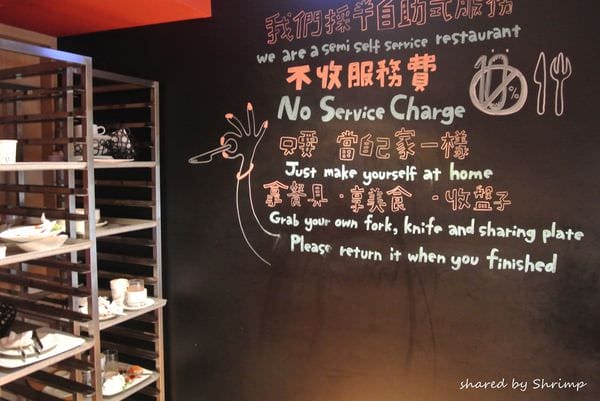 我們採半自助式服務
we are a semi self service restaurant
不收服務費
No Service Charge
10%
只要 當自己家一樣
Just make yourself at home
拿餐具·享美食·收盤子
Grab your own fork, knife and sharing plate
Please return it when you finished
shared by Shrimp